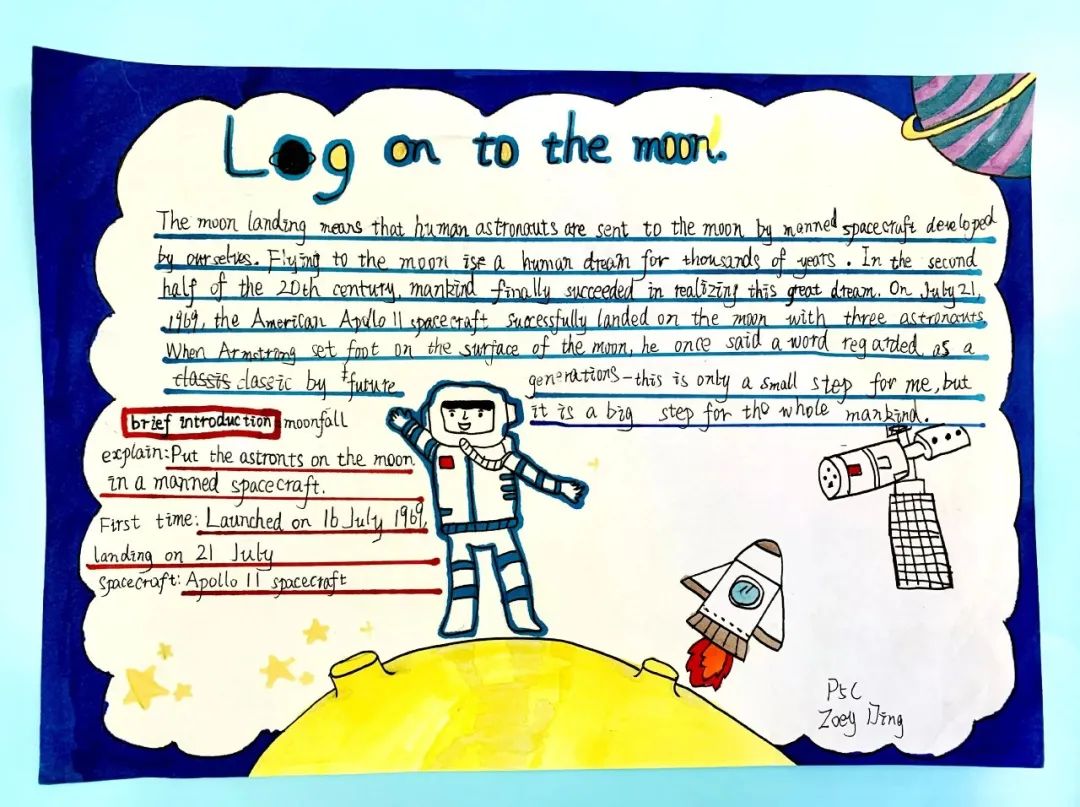 Log on to the moon.
The moon landing means that human astronauts are sent to the moon by manned spacecraft developed
by ourselves. Flying to the moon is a human dream for thousands of years. In the second
half of the 20th century, mankind finally succeeded in realizing this great dream. On July 21,
1969, the American Apollo 11 spacecraft successfully landed on the moon with three astronauts
When Armstrong set foot on the surface of the moon, he once said a word regarded as a
classis classic by future generations—this is only a small step for me, but
it is a big step for the whole mankind.
brief introduction moonfall
explain: Put the astronts on the moon
in a manned spacecraft.
First time: Launched on 16 July 1969,
landing on 21 July
Spacecraft: Apollo 11 spacecraft
P5C
Zoey Ding